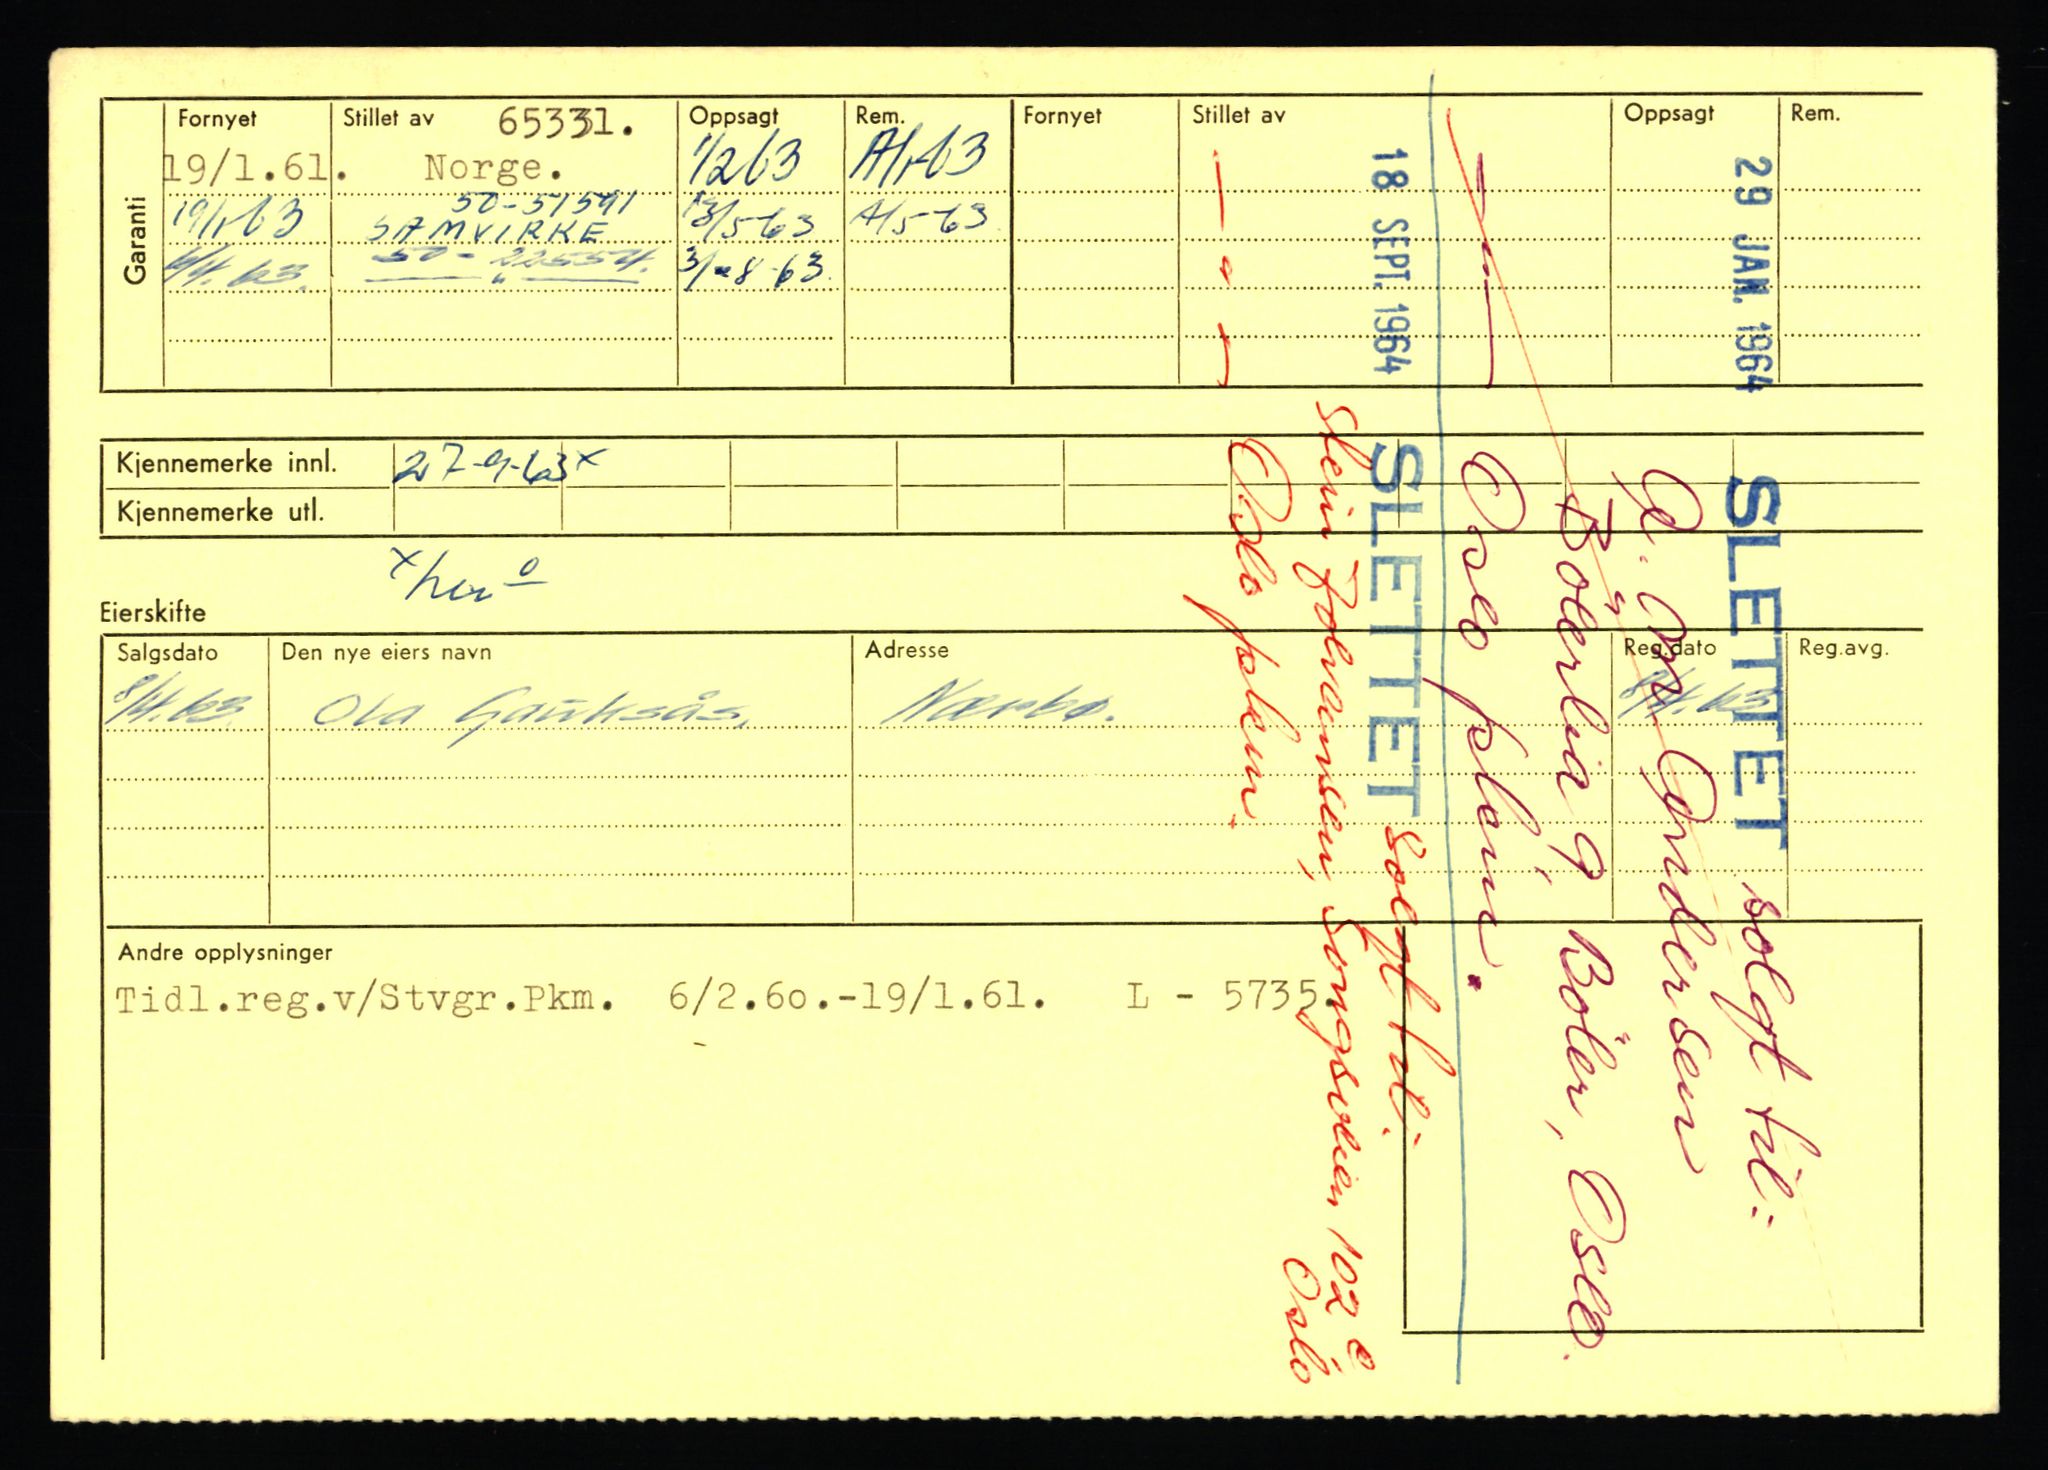 Garanti
Fornyet Stillet av 65331. Oppsagt Rem. Fornyet Stillet av Oppsagt Rem.
19/1.61. Norge. 1/2 63
19/1-63 50-51591
SAMVIRKE /5-63 A/5-63
50-22554.
63. 3/-8-63.
Kjennemerke innl. 27-9-63 x
Kjennemerke utl.
x
Eierskifte
Salgsdato Den nye eiers navn Adresse Reg.dato Reg.avg.
8/4.63. Ola Gauksås. Nærbø. 8/4.63
Andre opplysninger
Tidl.reg.v/Stvgr.Pkm. 6/2.60.-19/1.61. L - 5735.
29 JAN. 1964 SLETTET solgt til:
Andersen
Bölerlia 9, Böler, Oslo.
Oslo pkm.
18 SEPT. 1964 SLETTET Solgt til:
Stein Johannsen, Songsveien 102 e
Oslo
Oslo pkm.